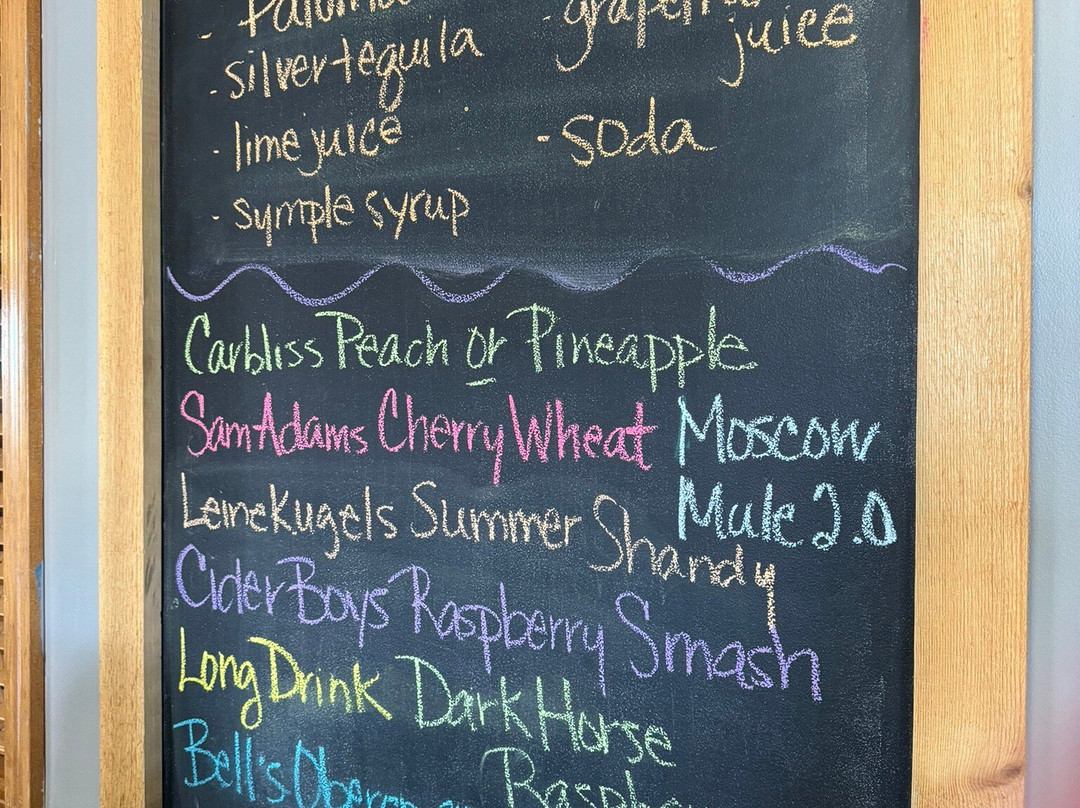 - Paloma
- grapefruit juice
- silver tequila
- lime juice
- soda
- symple syrup
Carbliss Peach or Pineapple
Sam Adams Cherry Wheat
Moscow
Mule 2.0
Leinekugels Summer Shandy
CiderBoys Raspberry Smash
Long Drink
Dark Horse
Bell's Oberon